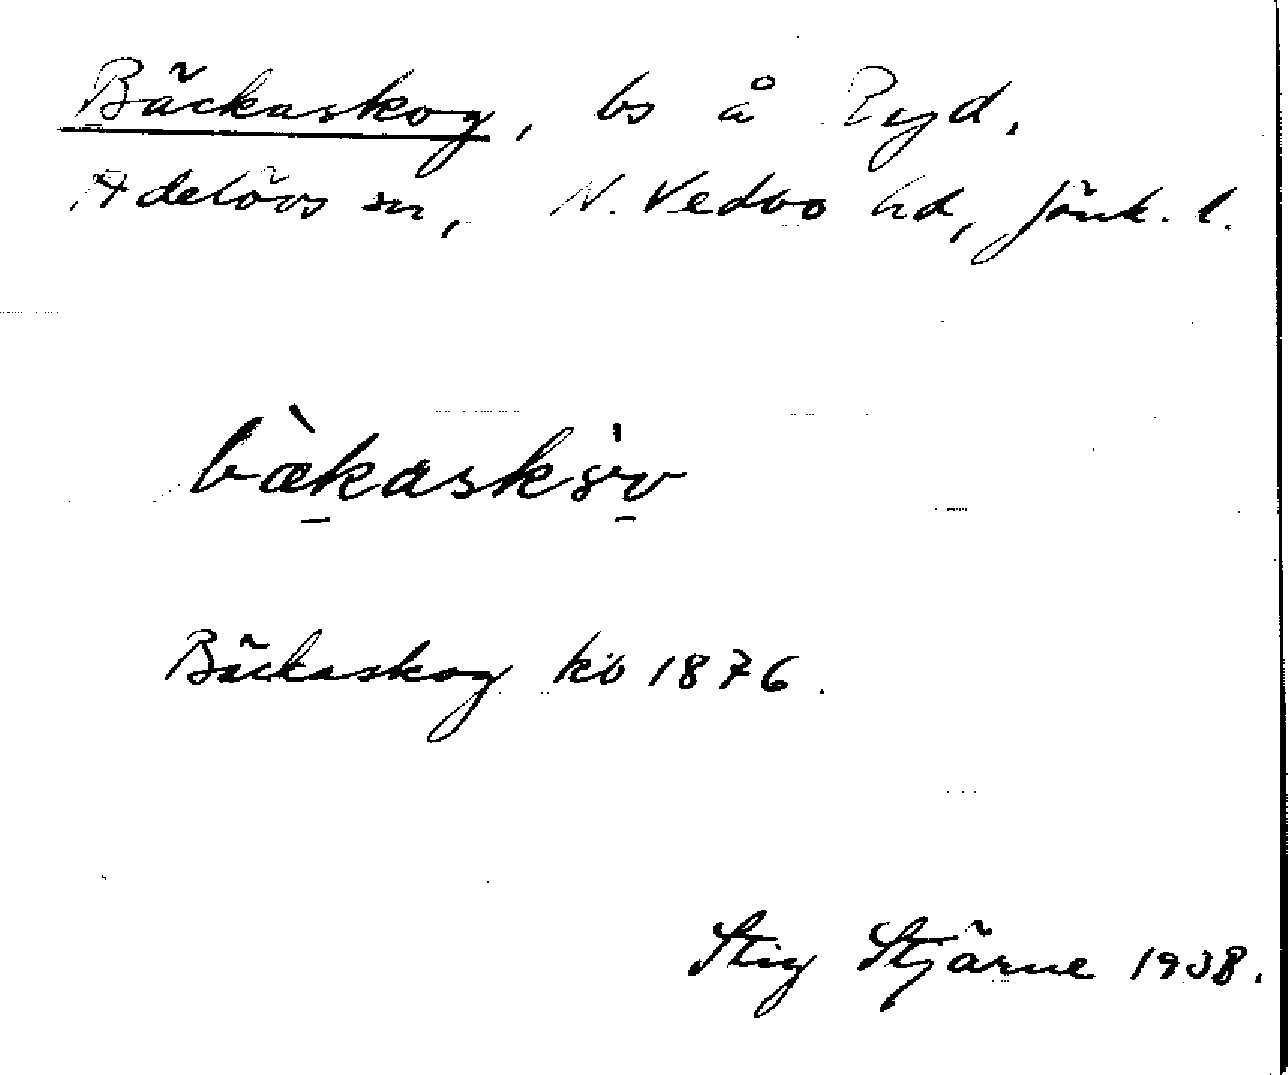 Bäckaskog, bs å Ryd.
Adelövs sn, N. Vedbo hd, Jönk. l.
bækaskov
Bäckaskog kö 1876.
Stig Stjärne 1938.